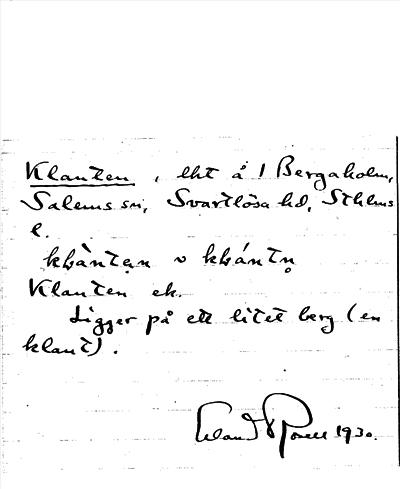 Klanten, lht å 1 Bergaholm,
Salems sn, Svartlösa hd, Sthlms
l.
Klanten ek.
Ligger på ett litet berg (en
klant).
Erland 1930.